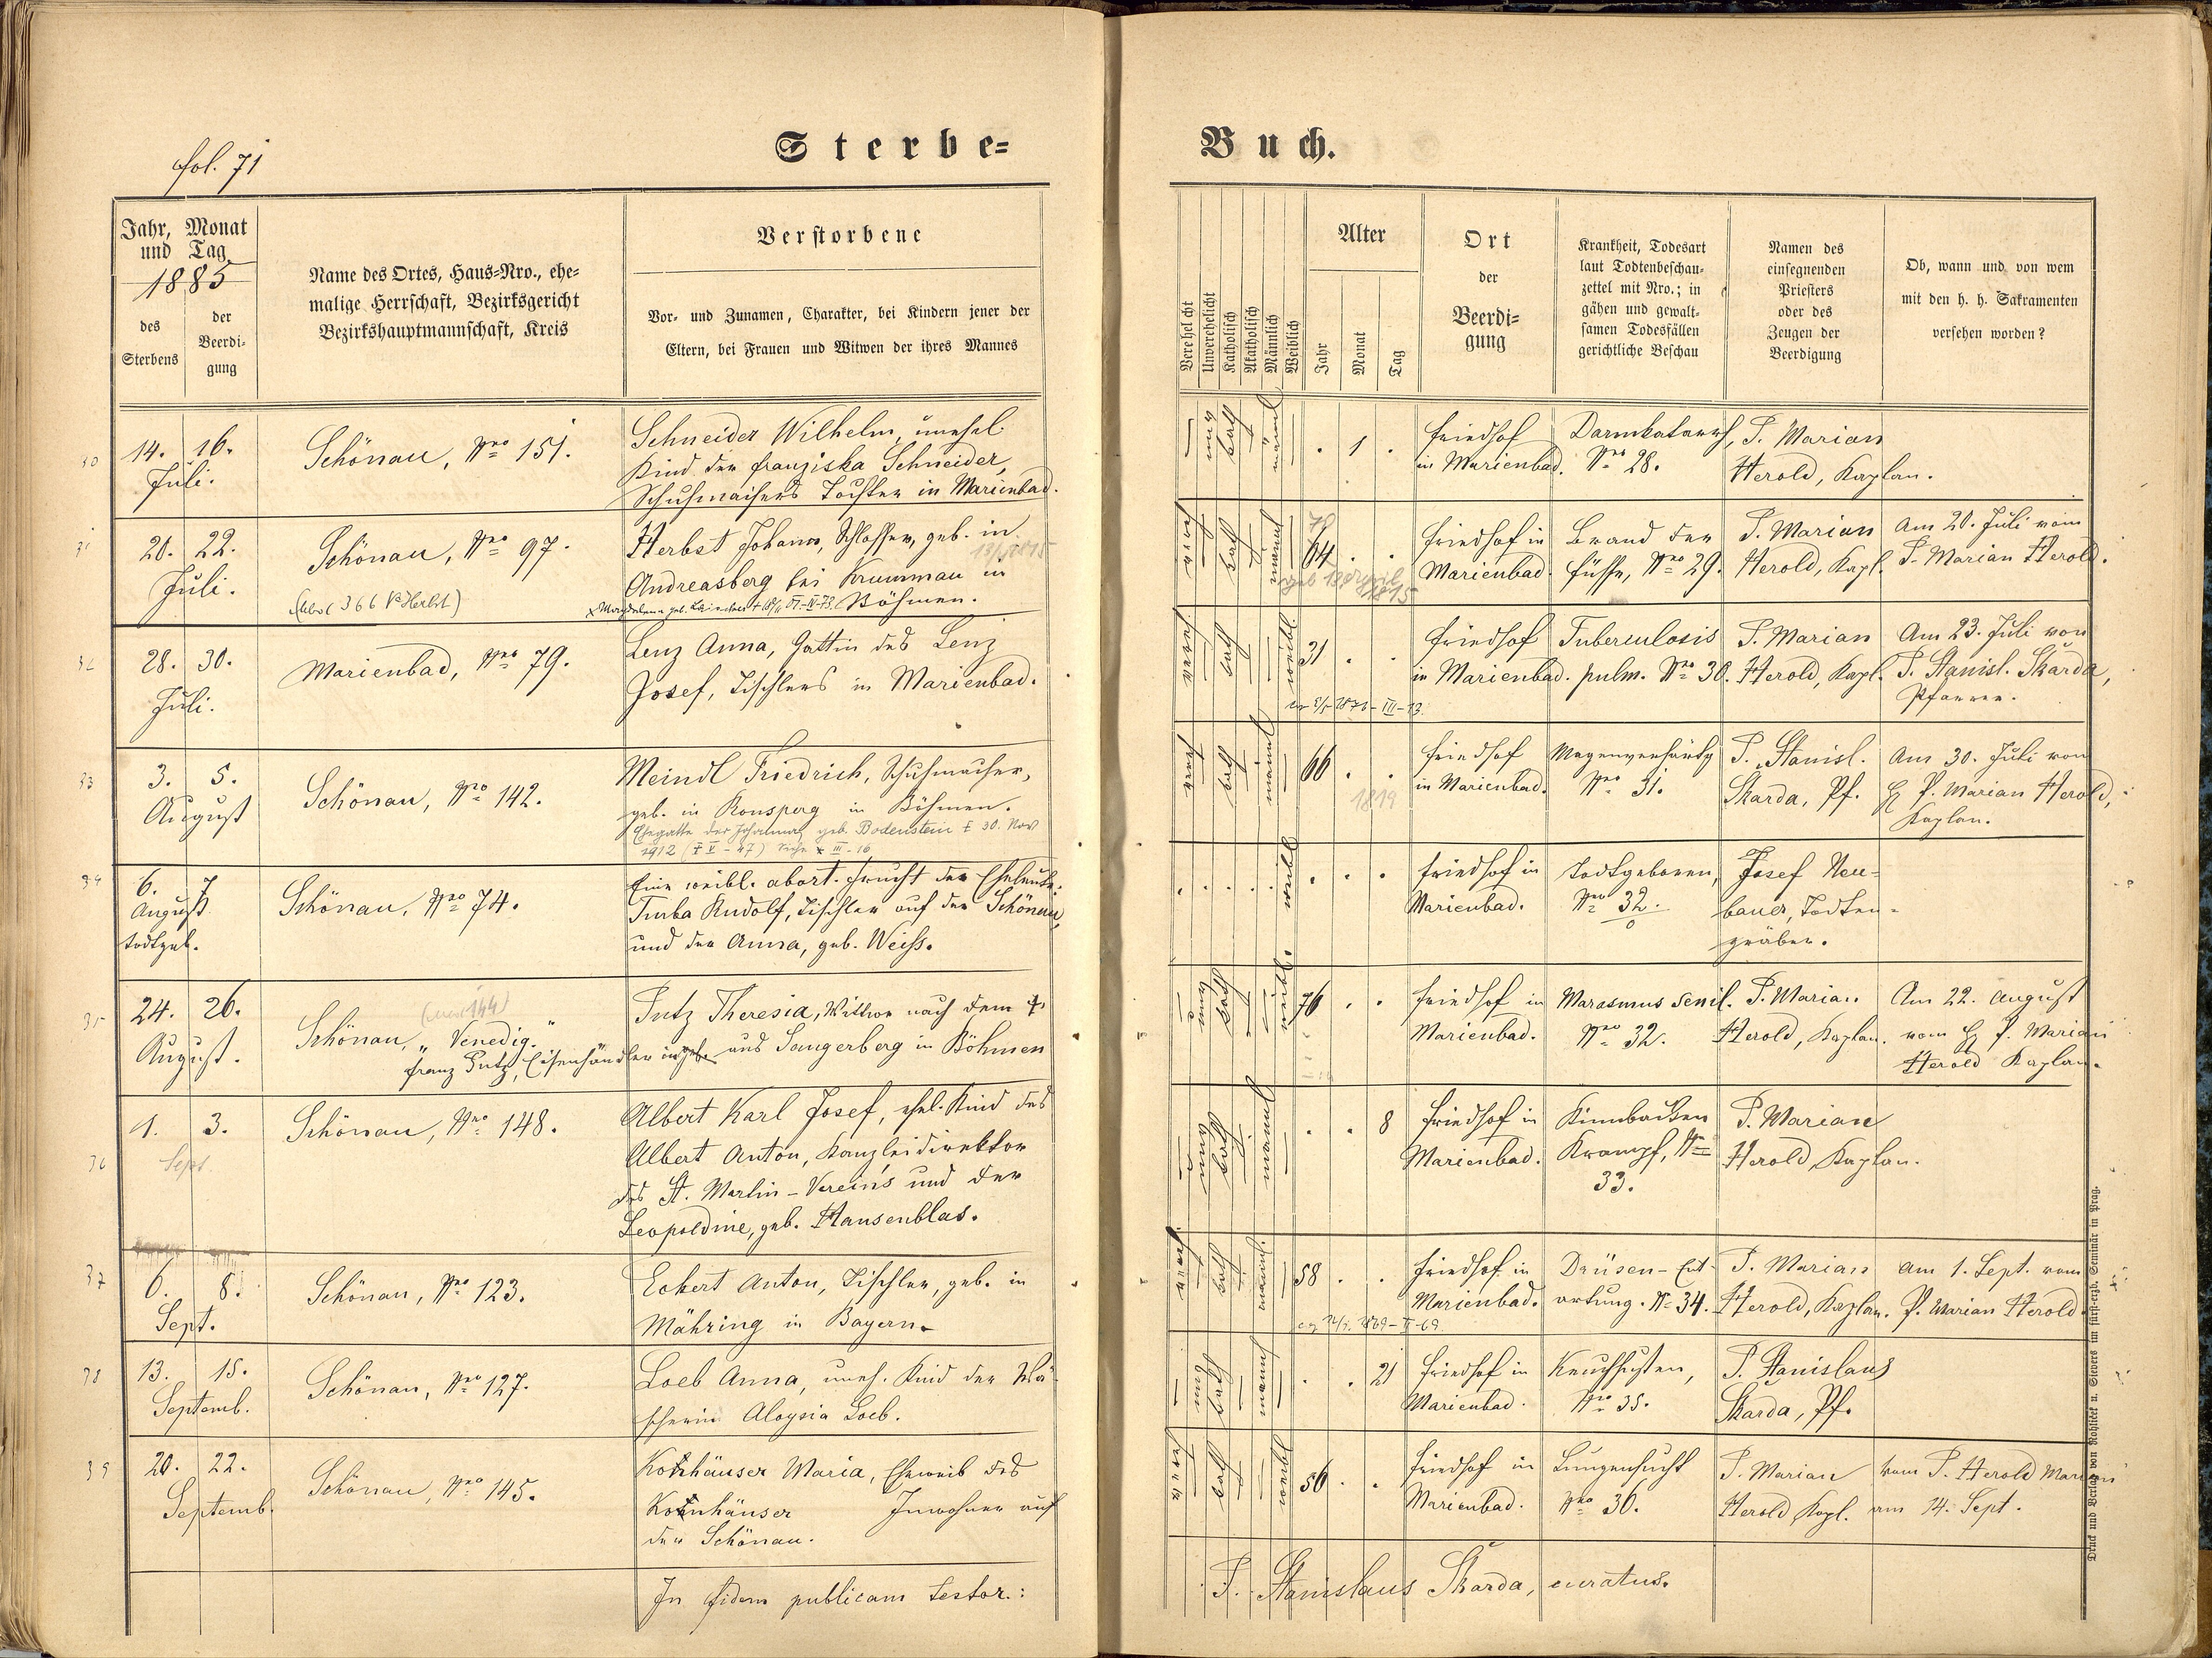 fol. 71
Sterbe=
Buch.
Jahr, Monat
und Tag
1885
des
Sterbens
der
Beerdi-
gung
Name des Ortes, Haus=Nro., ehe=
malige Herrschaft, Bezirksgericht
Bezirkshauptmannschaft, Kreis
Verstorbene
Vor= und Zunamen, Charakter, bei Kindern jener der
Eltern, bei Frauen und Witwen der ihres Mannes
Verehelicht
Unverehelicht
Katholisch
Akatholisch
Männlich
Weiblich
Alter
Jahr
Monat
Tag
Ort
der
Beerdi=
gung
Krankheit, Todesart
laut Todtenbeschau=
zettel mit Nro.; in
gähen und gewalt=
samen Todesfällen
gerichtliche Beschau
Namen des
einsegnenden
Priesters
oder des
Zeugen der
Beerdigung
Ob, wann und von wem
mit den h. h. Sakramenten
versehen worden?
30
14. 16.
Juli.
Schönau, Nro 151.
Schneider Wilhelm, unehel.
Kind der Franziska Schneider,
Schuhmachers Tochter in Marienbad.
. 1 .
Friedhof
in Marienbad.
Darmkatarrh,
Nro 28.
P. Marian
Herold, Kaplan.
31
20. 22.
Juli.
Schönau, Nro 97.
Herbst Johann, Schlosser, geb. in
Andreasberg bei Krummau in
Böhmen.
78
64 . .
geb 13 April
1815
Friedhof in
Marienbad.
Brand der
Füsse, Nro 29.
P. Marian
Herold, Kapl.
Am 20. Juli vom
P. Marian Herold.
32
28. 30.
Juli.
Marienbad, Nro 79.
Lenz Anna, Gattin des Lenz
Josef, Tischlers in Marienbad.
weibl
31 . .
Friedhof
in Marienbad.
Tuberculosis
pulm. Nro 30.
P. Marian
Herold, Kapl.
Am 23. Juli von
P. Stanisl. Skarda,
Pfarrer.
33
3. 5.
August
Schönau, Nro 142.
Meindl Friedrich, Schuhmacher,
geb. in Ronsperg in Böhmen.
Ehegatte der Johanna geb. Bodenstein † 30. Nov
1912
66 . .
1819
Friedhof
in Marienbad.
Magenverhärtg
Nro 31.
P. Stanisl.
Skarda, Pf.
Am 30. Juli von
P. Marian Herold,
Kaplan.
34
6. 7
August
todtgeb.
Schönau, Nro 74.
Eine weibl. abort. Frucht der Eheleute.
Turba Rudolf, Tischler auf der Schönau,
und der Anna, geb. Weiss.
weibl
. . .
Friedhof in
Marienbad.
Todtgeboren,
Nro 32.
Josef Neu-
bauer, Todten-
gräber.
35
24. 26.
August.
Schönau, "Venedig."
Putz Theresia, Wittwe nach dem †
Franz Putz, Eisenhändler in und Sangerberg in Böhmen
76 . .
Friedhof in
Marienbad.
Marasmus senil.
Nro 32.
P. Marian
Herold, Kaplan.
Am 22. August
vom P. Marian
Herold Kaplan.
36
1. 3.
Sept.
Schönau, Nro 148.
Albert Karl Josef, ehel. Kind des
Albert Anton, Kanzleidirektor
des St. Martin-Vereins und der
Leopoldine, geb. Hansenblas.
. . 8
Friedhof in
Marienbad.
Kinnbacken
Krampf, Nro
33.
P. Marian
Herold, Kaplan.
37
6. 8.
Sept.
Schönau, Nro 123.
Eckert Anton, Tischler, geb. in
Mähring in Bayern.
58 . .
Friedhof in
Marienbad.
Drüsen-Ent-
artung. No 34.
P. Marian
Herold, Kaplan.
Am 1. Sept. vom
P. Marian Herold
38
13. 15.
Septemb.
Schönau, Nro 127.
Loeb Anna, uneh. Kind der Wä-
scherin Aloysia Loeb.
. . 21
Friedhof in
Marienbad.
Keuchhusten,
Nro 35.
P. Stanislaus
Skarda, Pf.
39
20. 22.
Septemb.
Schönau, Nro 145.
Kornhäuser Maria, Eheweib des
Kornhäuser Inwohner auf
der Schönau.
56 . .
Friedhof in
Marienbad.
Lungensucht
Nro 36.
P. Marian
Herold Kapl.
Vom P. Herold Marian
am 14. Sept.
In fidem publicam testor.:
P. Stanislaus Skarda, curatus.
Druck und Verlag von Rohliček u. Sievers im fürst-erzb. Seminär in Prag.